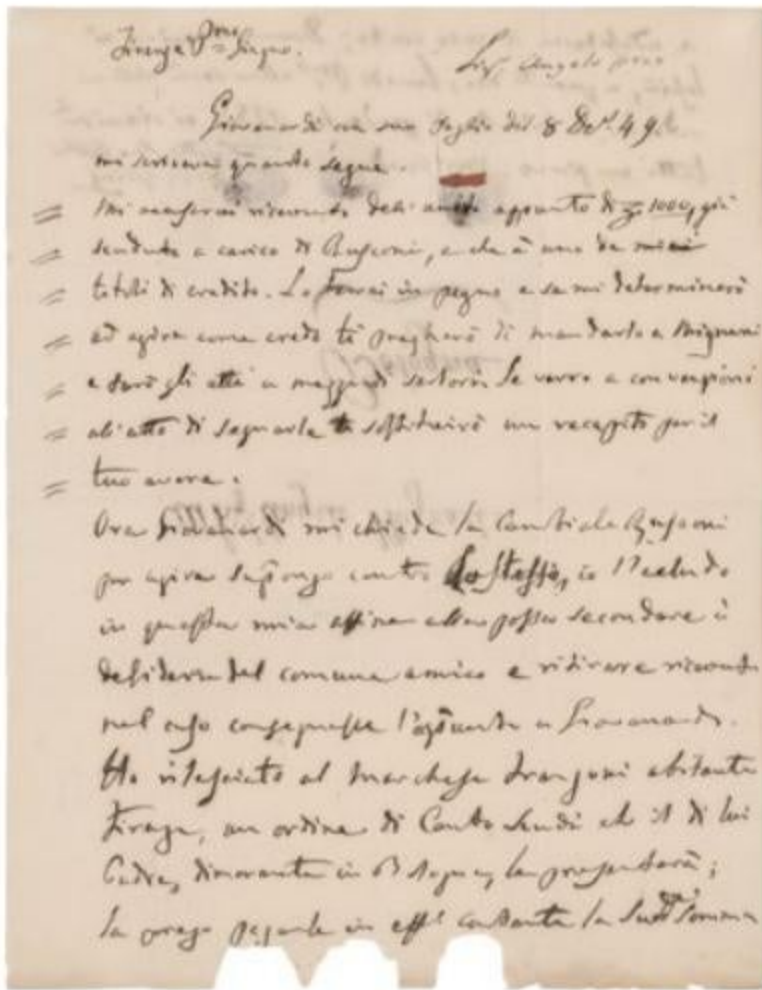 Firenze Pmo Giugno.
Sig. Angelo
Giovanardi con suo foglio del 8 49.
mi scriveva quanto segue.
Mi manderai riscontro dell' appunto di 1000, già
scaduto a carico di Rusconi, e che è uno de miei
titoli di credito. Lo terrai in pegno e se mi determinerò
ad agire come credo ti pregherò di mandarlo a Mignani
e farò gli atti a Se verrò a convenzioni
all'atto di segnarle ti sostituirò un recapito per il
tuo avere.
Ora Giovanardi mi chiede la Cambiale Rusconi
per agire contro Lo stesso, io l'includo
in questa mia affine ella possa secondare i
desiderj del comune amico e ritirare ricevuta
nel caso consegnasse a Giovanardi.
Ho rilasciato al Marchese Frangoni abitante
Firenze, un ordine di Cento Scudi che il di lui
Padre, dimorante in Bologna, le presenterà;
la prego pagarle in effo contante la Sudda Somma